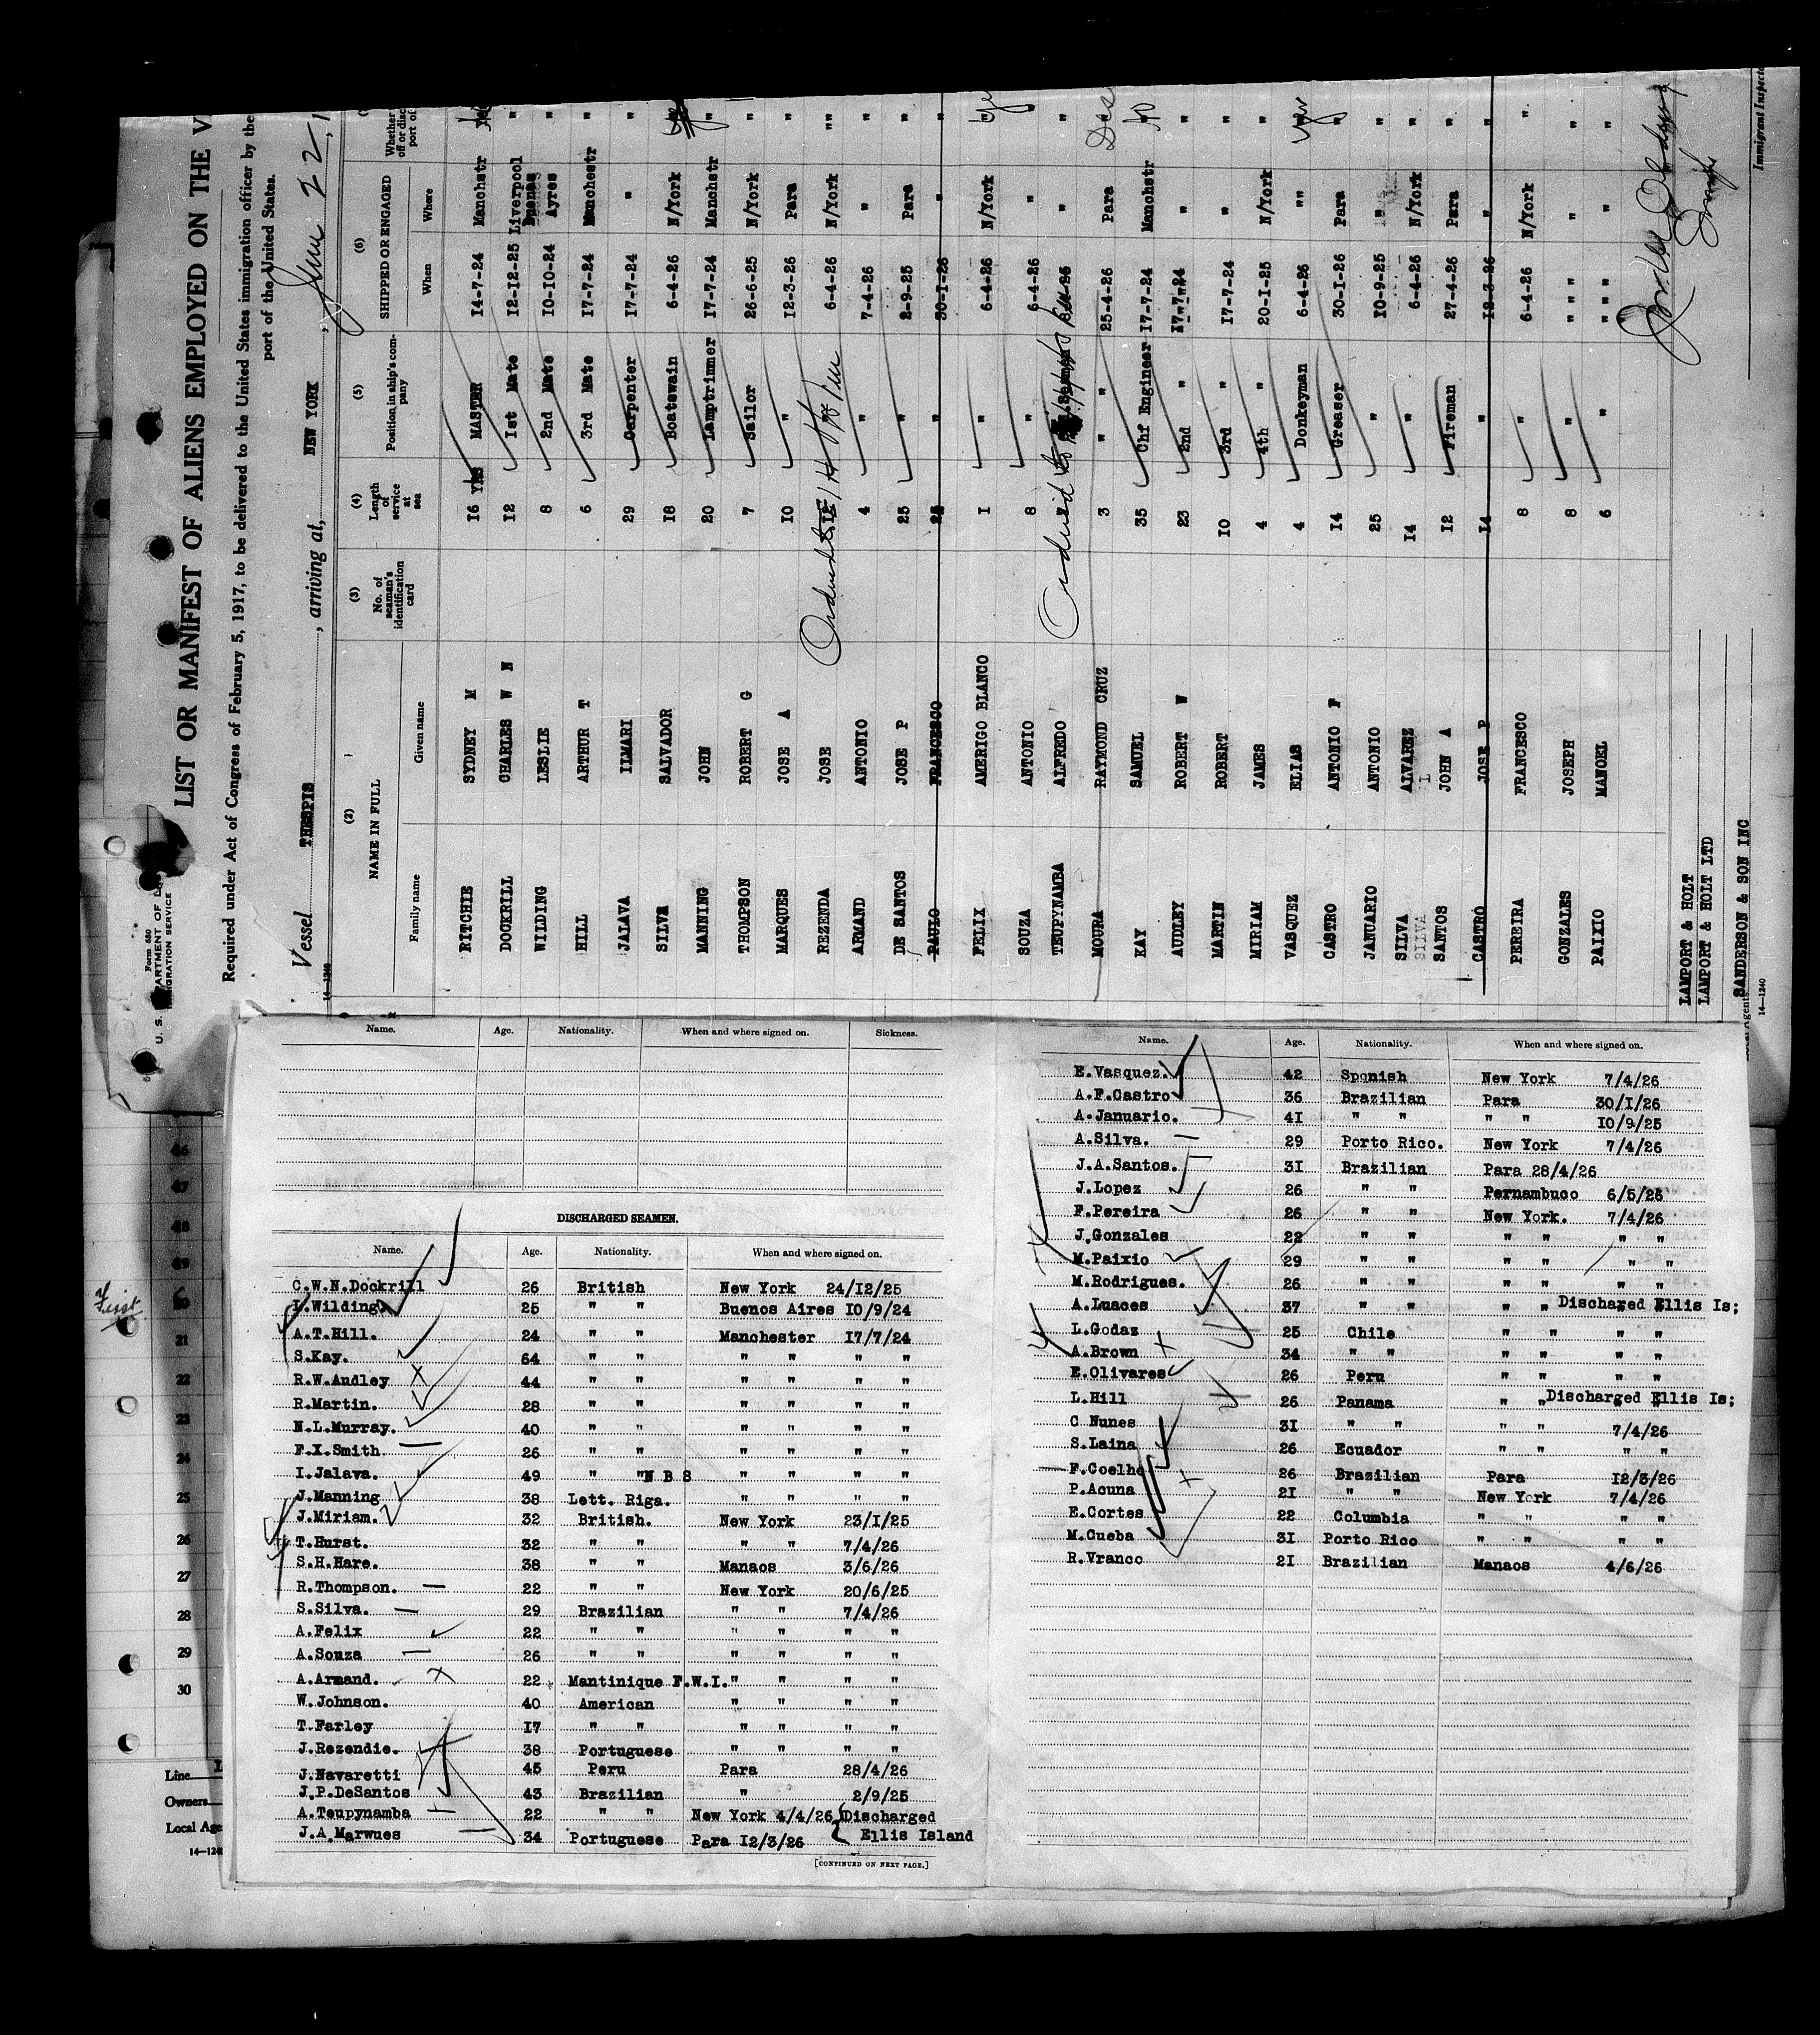 LIST OR MANIFEST OF ALIENS EMPLOYED ON THE V
Required under Act of Congress of February 5, 1917, to be delivered to the United States immigration officer by the
port of the United States.
Form 680
U. S. DEPARTMENT OF
IMMIGRATION SERVICE
Vessel THESPIS, arriving at, NEW YORK, June 22, 1
14—1240
(2) (3) (4) (5) (6)
NAME IN FULL No. of seaman's identification card Length of service at sea Position in ship's company SHIPPED OR ENGAGED Whether
Family name Given name When Where off or disc port of
RITCHIE SYDNEY M 16 YRS MASTER 14-7-24 Manchstr
DOCKRILL CHARLES W N 12 1st Mate 12-12-25 Liverpool "
WILDING LESLIE 8 2nd Mate 10-10-24 Buenos Ayres "
HILL ARTHUR T 6 3rd Mate 17-7-24 Manchestr "
JALAVA ILMARI 29 Carpenter 17-7-24 " "
SILVA SALVADOR 18 Boatswain 6-4-26 N/York
MANNING JOHN 20 Lamptrimmer 17-7-24 Manchstr "
THOMPSON ROBERT G 7 Sailor 26-6-25 N/York "
MARQUES JOSE A 10 " 12-3-26 Para "
REZENDA JOSE 12 6-4-26 N/York ""
ARMAND ANTONIO 4 " 7-4-26 " "
DE SANTOS JOSE P 25 " 2-9-25 Para "
PAULO FRANCESCO 25 " 30-1-26 " "
FELIX AMERIGO BLANCO 1 " 6-4-26 N/York
SOUZA ANTONIO 8 " 6-4-26 " "
TEUPYNAMBA ALFREDO Ordered " "
MOURA RAYMOND CRUZ 3 " 25-4-26 Para
KAY SAMUEL 35 Chf Engineer 17-7-24 Manchstr
AUDLEY ROBERT W 23 2nd " 17-7-24 " "
MARTIN ROBERT 10 3rd " 17-7-24 " "
MIRIAM JAMES 4 4th " 20-1-25 N/York "
VASQUEZ ELIAS 4 Donkeyman 6-4-26 ""
CASTRO ANTONIO F 14 Greaser 30-1-26 Para "
JANUARIO ANTONIO 25 " 10-9-25 " "
SILVA ALVAREZ 14 " 6-4-26 N/York "
SANTOS JOHN A 12 Fireman 27-4-26 Para "
CASTRO JOSE P 14 " 12-3-26 " "
PEREIRA FRANCESCO 8 " 6-4-26 N/York "
GONZALES JOSEPH 8 " " " " " "
PAIXIO MANOEL 6 " " " " " "
LAMPORT & HOLT
LAMPORT & HOLT LTD
SANDERSON & SON INC
Immigrant Inspecto
14—1240
Name. Age. Nationality. When and where signed on. Sickness.
DISCHARGED SEAMEN.
Name. Age. Nationality. When and where signed on.
C.W.N.Dockrill 26 British New York 24/12/25
L.Wilding 25 " " Buenos Aires 10/9/24
A.T.Hill. 24 " " Manchester 17/7/24
S.Kay. 64 " " " " " "
R.W.Audley 44 " " " " " "
R.Martin. 28 " " " " " "
N.L.Murray. 40 " " " " " "
F.X.Smith 26 " " " " " "
I.Jalava. 49 " "N B S " " " "
J.Manning 38 Lett. Riga. " " " "
J.Miriam. 32 British. New York 23/1/25
T.Hurst. 32 " " " " 7/4/26
S.H.Hare. 38 " " Manaos 3/6/26
R.Thompson. 22 " " New York 20/6/25
S.Silva. 29 Brazilian " " 7/4/26
A.Felix 22 " " " " " "
A.Souza 26 " " " " " "
A.Armand. 22 Mantinique F.W.I." " " "
W.Johnson. 40 American " " " "
T.Farley 17 " " " " " "
J.Rezendie. 38 Portuguese " " " "
J.Navaretti 45 Peru Para 28/4/26
J.P.DeSantos 43 Brazilian " 2/9/25
A.Teupynamba 22 " " New York 4/4/26 {Discharged
J.A.Marwues 34 Portuguese Para 12/3/26 { Ellis Island
[CONTINUED ON NEXT PAGE.]
Name. Age. Nationality. When and where signed on.
E.Vasquez. 42 Spanish New York 7/4/26
A.F.Castro 36 Brazilian Para 30/1/26
A.Januario. 41 " " " " 10/9/25
A.Silva. 29 Porto Rico. New York 7/4/26
J.A.Santos. 31 Brazilian Para 28/4/26
J.Lopez 26 " " Pernambuco 6/5/26
F.Pereira 26 " " New York. 7/4/26
J.Gonzales 22 " " " " " "
M.Paixio 29 " " " " " "
M.Rodrigues. 26 " " " " " "
A.Luaces 37 " " " " Discharged Ellis Is;
L.Godaz 25 Chile " " " "
A.Brown 34 " " " " " "
E.Olivares 26 Peru " " " "
L.Hill 26 Panama " " Discharged Ellis Is;
C.Nunes 31 " " " " 7/4/26
S.Laina 26 Ecuador " " " "
F.Coelho 26 Brazilian Para 12/3/26
P.Acuna 21 " " New York 7/4/26
E.Cortes 22 Columbia " " " "
M.Cueba 31 Porto Rico " " " "
R.Vranco 21 Brazilian Manaos 4/6/26
46
47
48
49
21
22
23
24
25
26
27
28
29
30
Line
Owners
Local Age
14—124